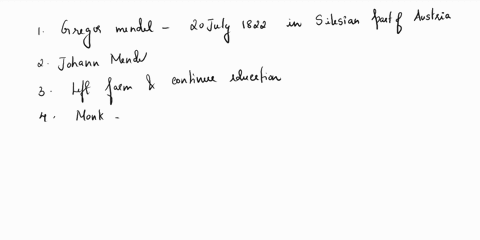 1. Gregor mendel - 20 July 1822 in Silesian part of Austria
2. Johann Mendel
3. Left farm & continue education
4. Monk -